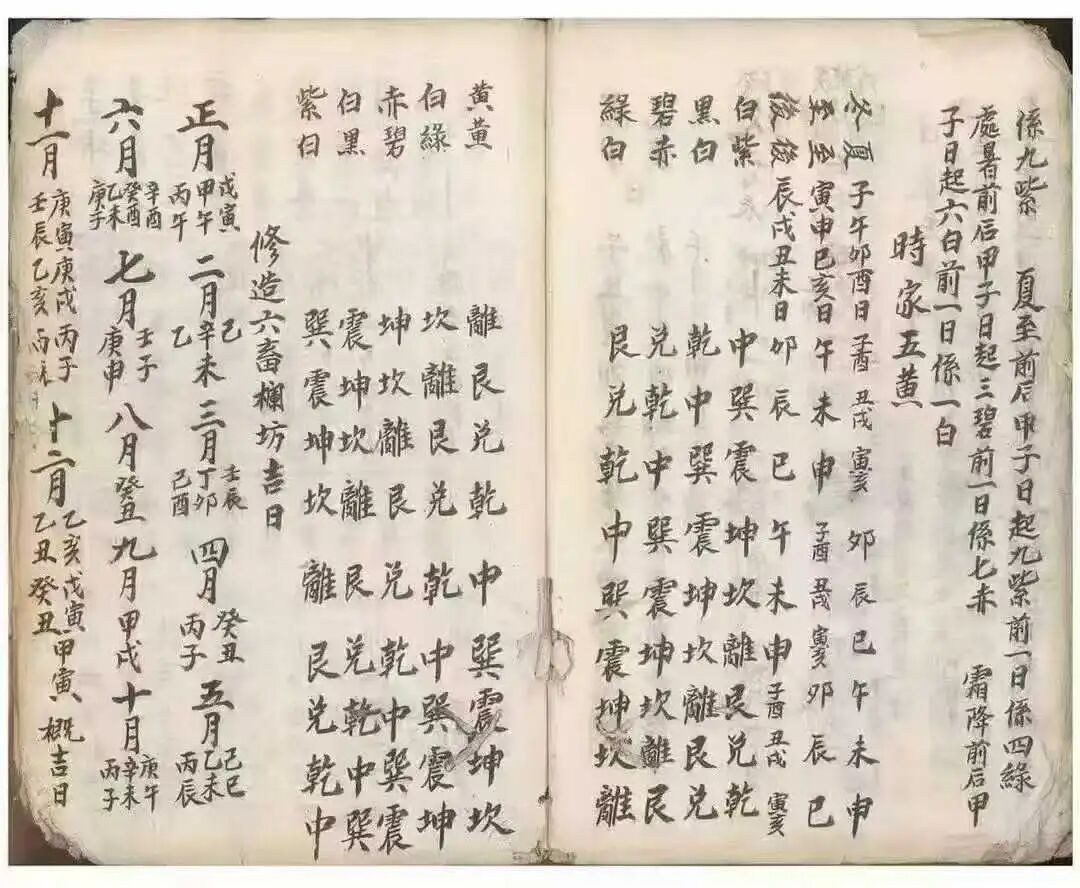 係九紫　夏至前后甲子日起九紫前一日係四綠
處暑前后甲子日起三碧前一日係七赤　霜降前后甲
子日起六白前一日係一白
時家五黃
冬夏 子午卯酉日 子酉 丑戌 寅亥 卯 辰 巳 午 未 申
至至 寅申巳亥日 午 未 申 子酉 丑戌 寅亥 卯 辰 巳
後後 辰戌丑未日 卯 辰 巳 午 未 申 子酉 丑戌 寅亥
白紫 中巽震坤坎離艮兑乾
黑白 乾中巽震坤坎離艮兑
碧赤 兑乾中巽震坤坎離艮
綠白 艮兑乾中巽震坤坎離
黃黃 離艮兑乾中巽震坤坎
白綠 坎離艮兑乾中巽震坤
赤碧 坤坎離艮兑乾中巽震
白黑 震坤坎離艮兑乾中巽
紫白 巽震坤坎離艮兑乾中
修造六畜欄坊吉日
正月 戊寅 甲午 丙午 二月 己 辛未 乙 三月 壬辰 丁卯 己酉 四月 癸丑 丙子 五月 己巳 乙未 丙辰
六月 辛酉 癸酉 乙未 庚子 七月 壬子 庚申 八月 癸丑 九月 甲戌 十月 庚午 辛未 丙子
十一月 庚寅 庚戌 丙子 壬辰 乙亥 丙 十二月 乙亥 戊寅 甲寅 乙丑 癸丑 概吉日